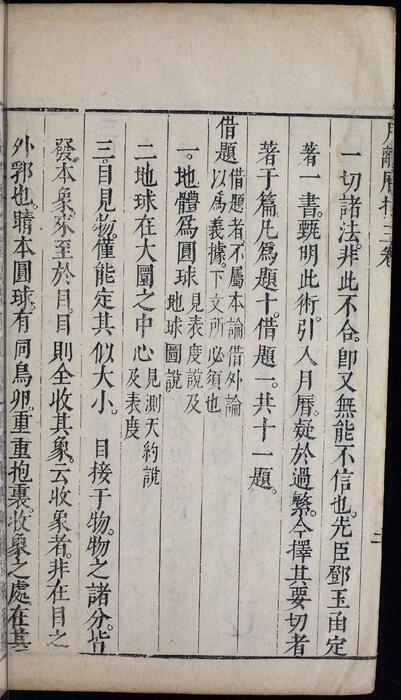 月離曆指三卷
二
一切諸法。非此不合。即又無能不信也。先臣鄧玉函定
著一書。甄明此術。引入月曆。疑於過繁。今擇其要切者
著于篇。凡為題十。借題一。共十一題。
借題
借題者。不屬本論。借外論
以為義據。下文所必須也
一。地體為圓球
見表度說及
地球圖說
二地球在大圜之中心
見測天約說
及表度
三。目見物。僅能定其似大小。目接于物。物之諸分。皆
發本象。來至於目。目則全收其象。云收象者。非在目之
外郛也。睛本圓球。有同鳥卵。重重抱裹。收象之處。在其